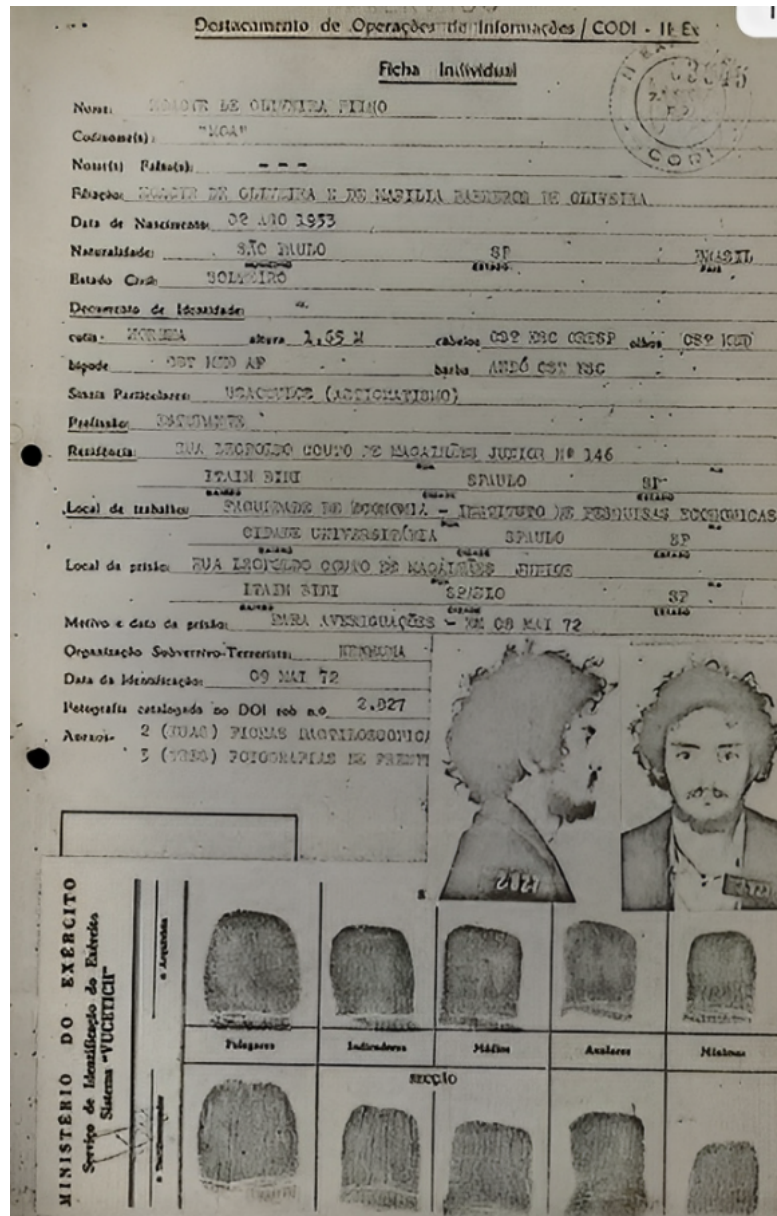 Destacamento de Operações de Informações / CODI - II Ex
Ficha Individual
CODI
Nome: MOACYR DE OLIVEIRA FILHO
Codinome(s): "MOA"
Nome(s) Falso(s): - - -
Filiação: MOACYR DE OLIVEIRA E DE MARILIA DE OLIVEIRA
Data de Nascimento: 02 AGO 1953
Naturalidade: SÃO PAULO SP BRASIL
MUNICÍPIO ESTADO PAÍS
Estado Civil: SOLTEIRO
Documento de Identidade:
cutis- MORENA altura 1,65 M cabelos CSP ESC CRESP olhos MED
bigode CST MED AP barba ANDÓ CST ESC
Sinais Particulares: USA OCULOS (ASTIGMATISMO)
Profissão: ESTUDANTE
Residência: RUA LEOPOLDO COUTO DE MAGALHÃES JUNIOR Nº 146
RUA
ITAIM BIBI SPAULO SP
BAIRRO CIDADE ESTADO
Local de trabalho: FACULDADE DE ECONOMIA - INSTITUTO DE PESQUISAS ECONOMICAS
RUA
CIDADE UNIVERSITÁRIA SPAULO SP
BAIRRO CIDADE ESTADO
Local da prisão: RUA LEOPOLDO COUTO DE MAGALHÃES JUNIOR
RUA
ITAIM BIBI SPAULO SP
BAIRRO CIDADE ESTADO
Motivo e data da prisão: PARA AVERIGUAÇÕES - EM 08 MAI 72
Organização Subversivo-Terrorista: NENHUMA
Data da Identificação: 09 MAI 72
Fotografia catalogada no DOI sob n.o 2.827
Anexos- 2 (DUAS) FICHAS DACTILOSCOPICA
3 (TRES) FOTOGRAFIAS DE FRENTE
MINISTÉRIO DO EXÉRCITO
Serviço de Identificação do Exército
Sistema "VUCETICH"
o Arquivista
Polegares Indicadores Médios Anulares Mínimos
SECÇÃO